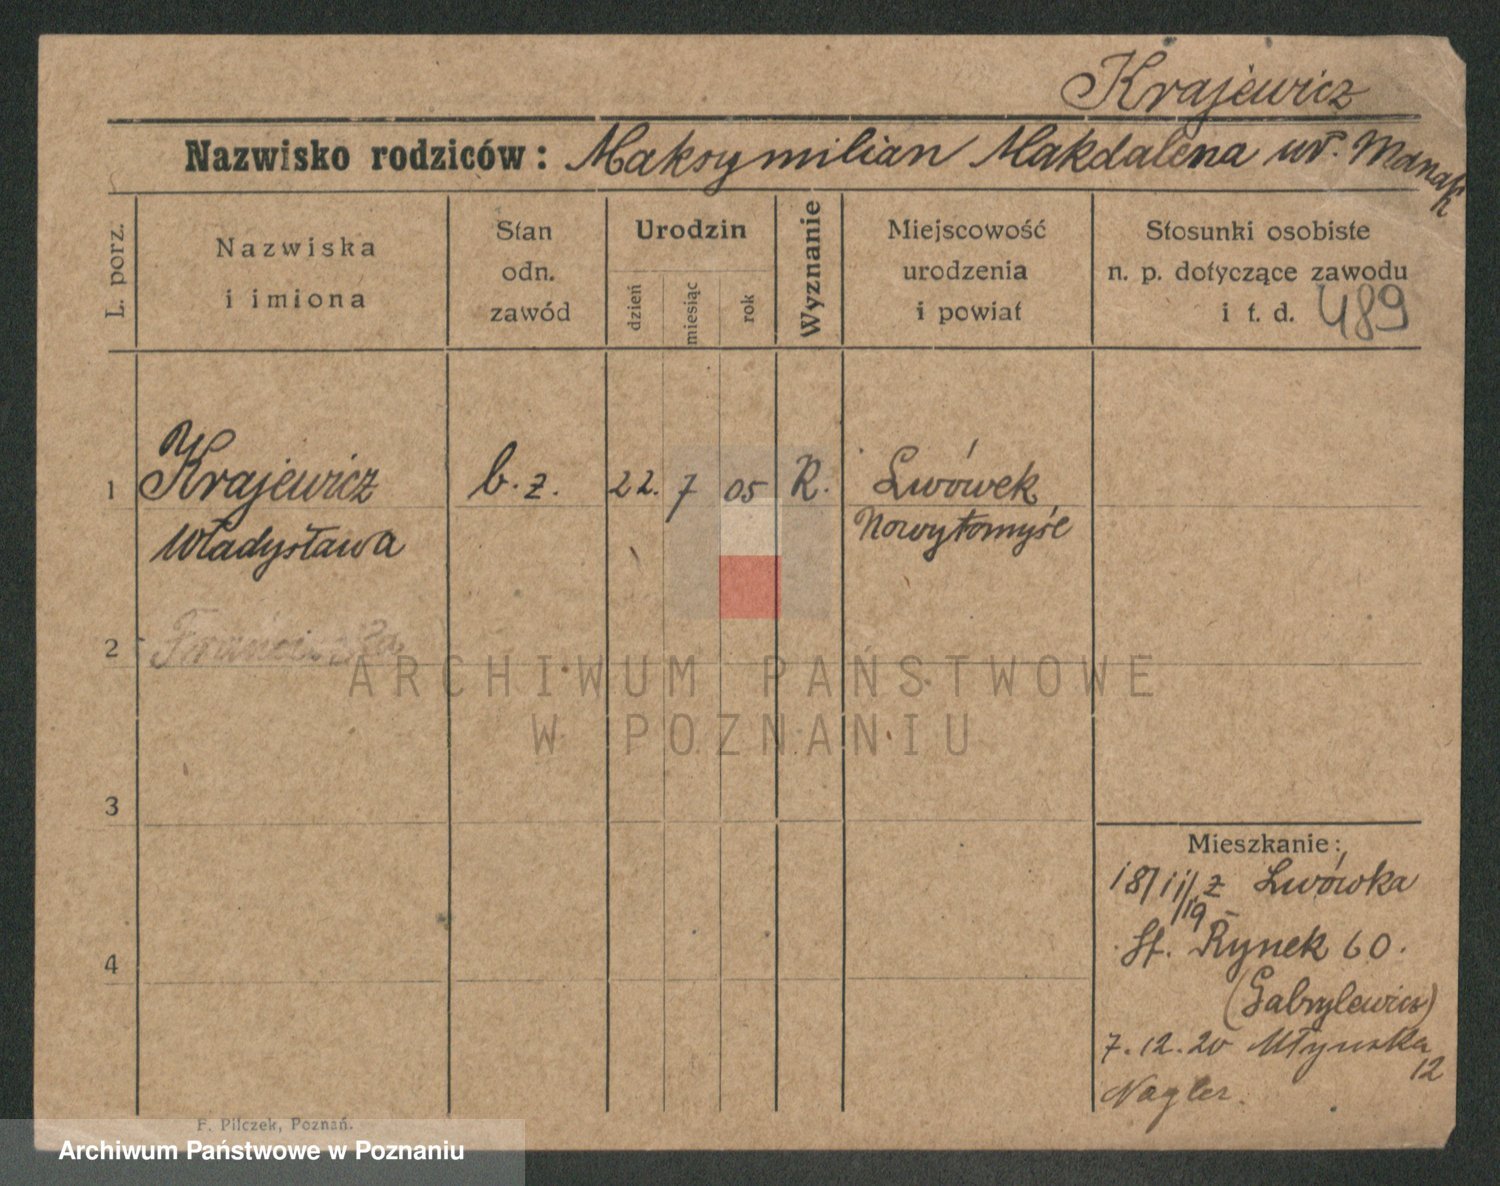 Krajewicz
Nazwisko rodziców: Maksymilian Makdalena ur. Manak
L. porz.
Nazwiska i imiona
Stan odn. zawód
Urodzin
dzień
miesiąc
rok
Wyznanie
Miejscowość urodzenia i powiat
Stosunki osobiste n. p. dotyczące zawodu i t. d.
489
1 Krajewicz b. z. 22. 7 05 R. Lwówek
Władysława Nowytomyśl
2 Franciszka
3
4
Mieszkanie:
18/11/19 z Lwówka
St. Rynek 60.
(Gabrylewicz)
7.12.20 Młyńska 12
Nagler.
F. Pilczek, Poznań.
ARCHIWUM PAŃSTWOWE
W POZNANIU
Archiwum Państwowe w Poznaniu